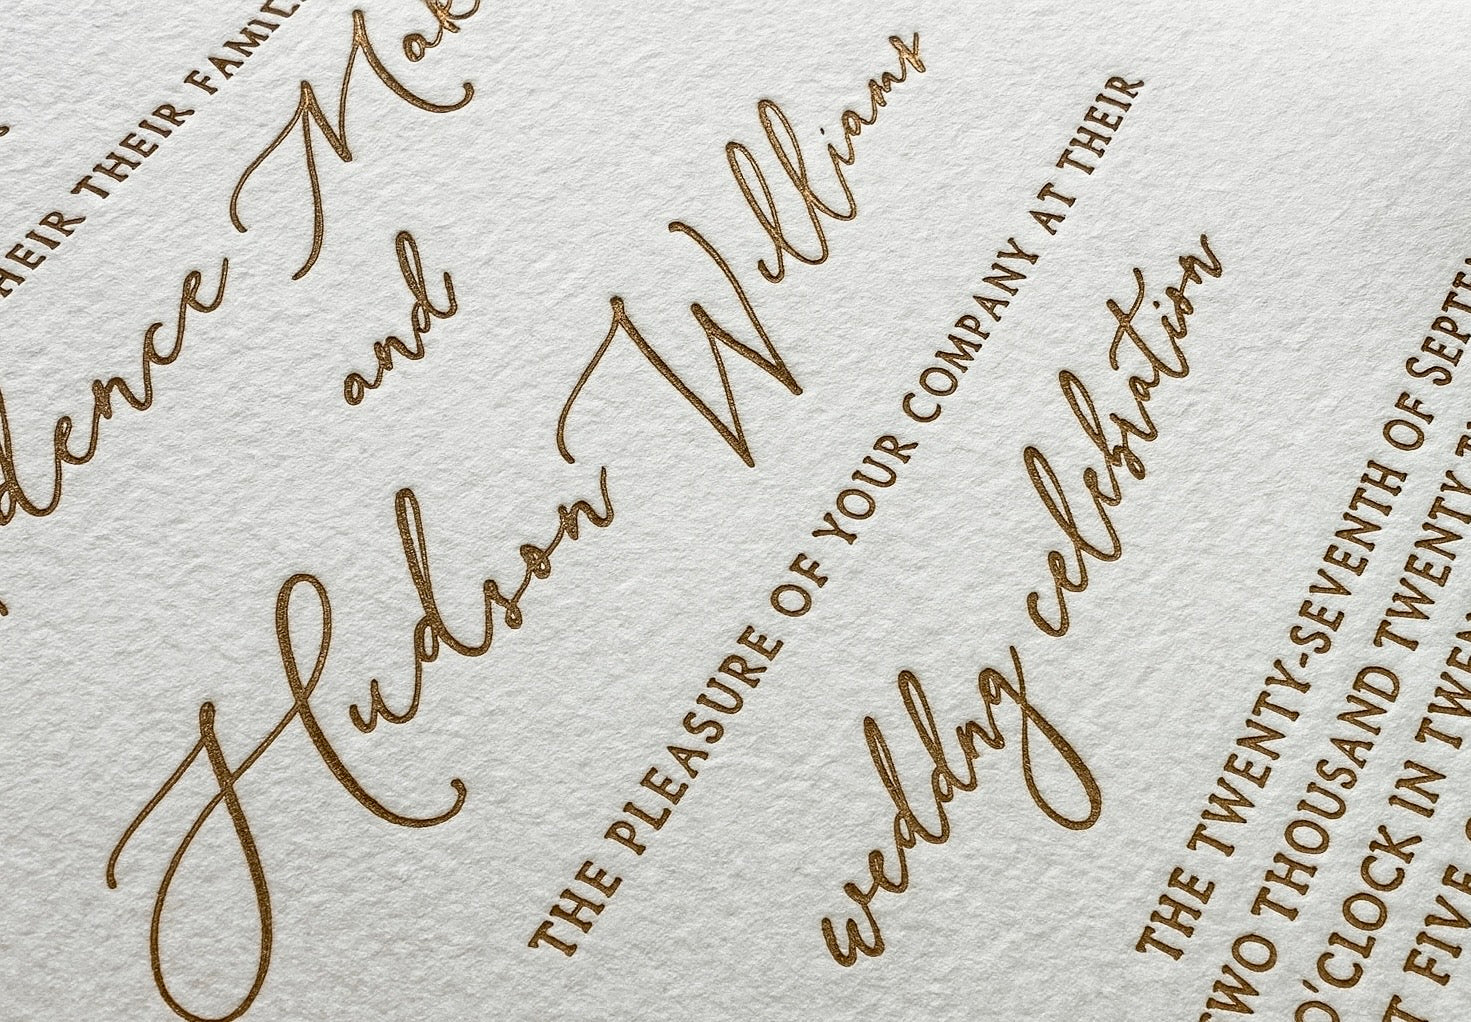 THEIR THEIR FAMIL
dence Mak
and
Hudson Williams
THE PLEASURE OF YOUR COMPANY AT THEIR
wedding celebration
THE TWENTY-SEVENTH OF SEPTE
TWO THOUSAND TWENTY
O'CLOCK IN TWEN
FIVE